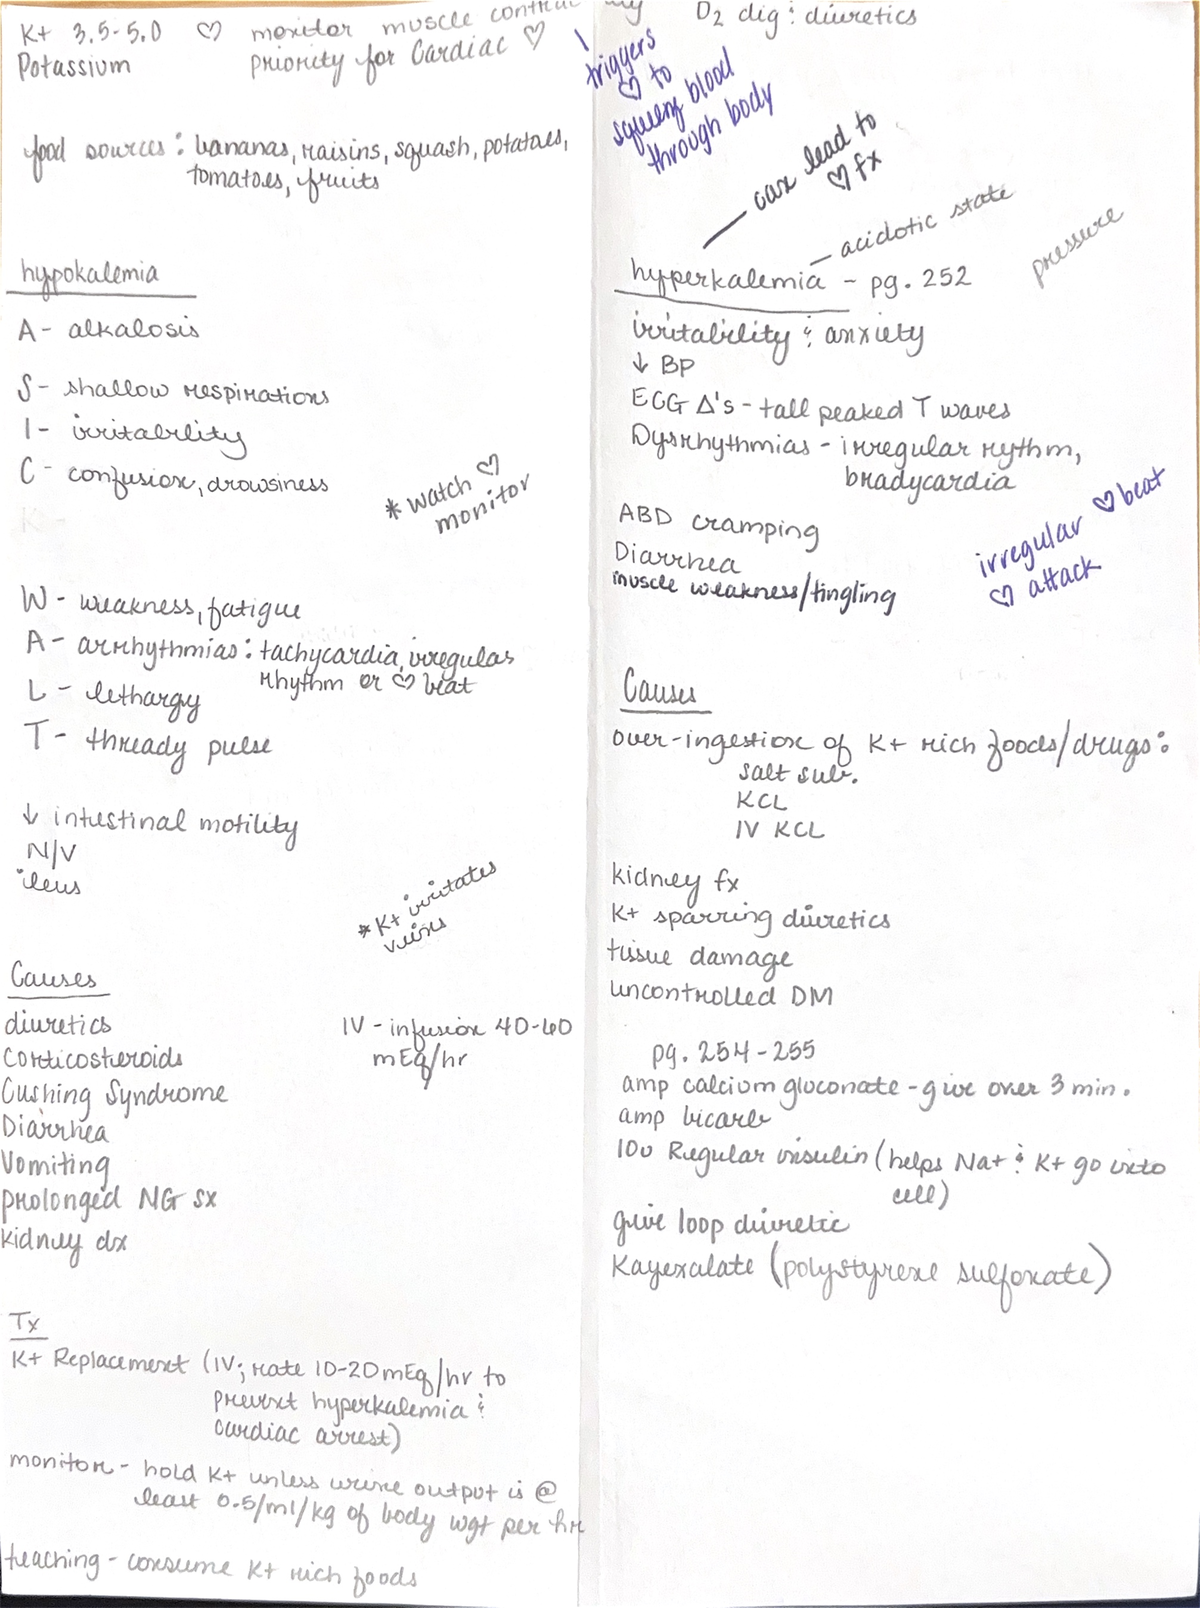 K+ 3.5-5.0 ♡ monitor muscle
Potassium priority for Cardiac ♡
food sources: bananas, raisins, squash, potatoes,
tomatoes, fruits
hypokalemia
A- alkalosis
S- shallow respirations
I- irritability
C- confusion, drowsiness
* watch ♡
monitor
K-
W- weakness, fatigue
A- arrhythmias: tachycardia, irregular
rhythm or ♡ beat
L- lethargy
T- thready pulse
↓ intestinal motility
N/V
ileus
* K+ irritates
veins
Causes
diuretics
Corticosteroids
Cushing Syndrome
Diarrhea
Vomiting
prolonged NG sx
kidney dx
IV - infusion 40-60
mEq/hr
Tx
K+ Replacement (IV; rate 10-20 mEq/hr to
prevent hyperkalemia &
cardiac arrest)
monitor - hold K+ unless urine output is @
least 0.5/ml/kg of body wgt per hr
teaching - consume K+ rich foods
O2 dig & diuretics
triggers
♡ to
squeeze blood
through body
— can lead to
♡ fx
— acidotic state
pressure
hyperkalemia - pg. 252
irritability & anxiety
↓ BP
ECG Δ's - tall peaked T waves
Dysrhythmias - irregular rythm,
bradycardia
ABD cramping
Diarrhea
muscle weakness/tingling
irregular ♡ beat
♡ attack
Causes
over-ingestion of K+ rich foods/drugs:
salt sub.
KCL
IV KCL
kidney fx
K+ sparring diuretics
tissue damage
uncontrolled DM
pg. 254-255
amp calcium gluconate - give over 3 min.
amp bicarb
10u Regular insulin (helps Na+ & K+ go into
cell)
give loop diuretic
Kayexalate (polystyrene sulfonate)